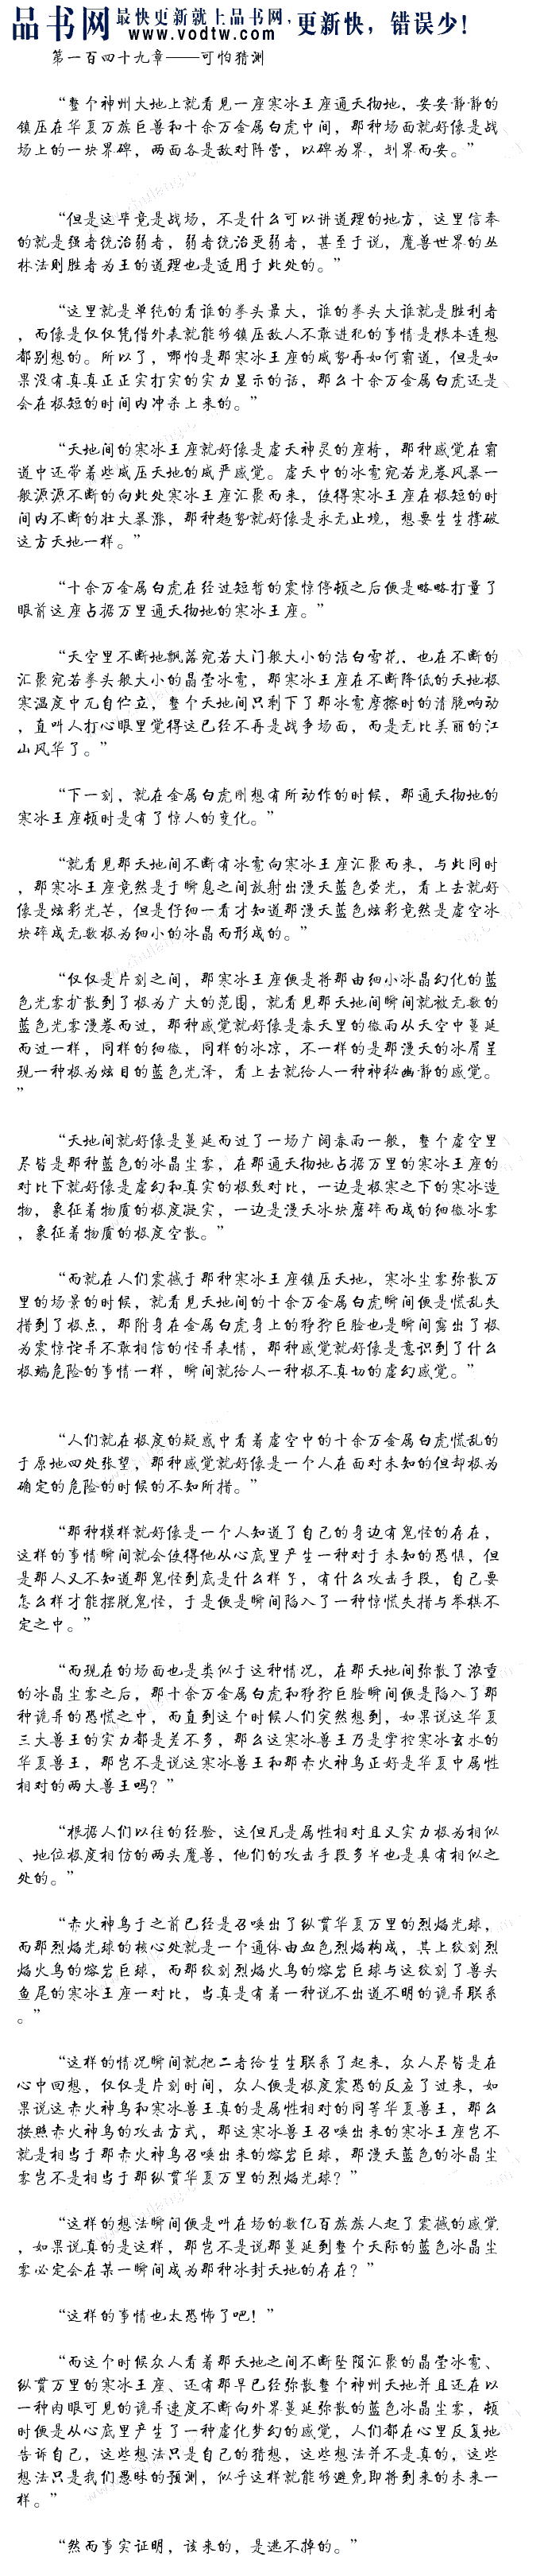 品书网 最快更新就上品书网, 更新快，错误少!
www.vodtw.com
第一百四十九章——可怕猜测
“整个神州大地上就看见一座寒冰王座通天彻地，安安静静的
镇压在华夏万族巨兽和十余万金属白虎中间，那种场面就好像是战
场上的一块界碑，两面各是敌对阵营，以碑为界，划界而安。”
“但是这毕竟是战场，不是什么可以讲道理的地方，这里信奉
的就是强者统治弱者，弱者统治更弱者，甚至于说，魔兽世界的丛
林法则胜者为王的道理也是适用于此处的。”
“这里就是单纯的看谁的拳头最大，谁的拳头大谁就是胜利者
，而像是仅仅凭借外表就能够镇压敌人不敢进犯的事情是根本连想
都别想的。所以了，哪怕是那寒冰王座的威势再如何霸道，但是如
果没有真真正正实打实的实力显示的话，那么十余万金属白虎还是
会在极短的时间内冲杀上来的。”
“天地间的寒冰王座就好像是虚天神灵的座椅，那种感觉在霸
道中还带着些威压天地的威严感觉。虚天中的冰雹宛若龙卷风暴一
般源源不断的向此处寒冰王座汇聚而来，使得寒冰王座在极短的时
间内不断的壮大暴涨，那种趋势就好像是永无止境，想要生生撑破
这方天地一样。”
“十余万金属白虎在经过短暂的震惊停顿之后便是略略打量了
眼前这座占据万里通天彻地的寒冰王座。”
“天空里不断地飘落宛若大门般大小的洁白雪花，也在不断的
汇聚宛若拳头般大小的晶莹冰雹，那寒冰王座在不断降低的天地极
寒温度中兀自伫立，整个天地间只剩下了那冰雹摩擦时的清脆响动
，直叫人打心眼里觉得这已经不再是战争场面，而是无比美丽的江
山风华了。”
“下一刻，就在金属白虎刚想有所动作的时候，那通天彻地的
寒冰王座顿时是有了惊人的变化。”
“就看见那天地间不断有冰雹向寒冰王座汇聚而来，与此同时
，那寒冰王座竟然是于瞬息之间放射出漫天蓝色荧光，看上去就好
像是炫彩光芒，但是仔细一看才知道那漫天蓝色炫彩竟然是虚空冰
块碎成无数极为细小的冰晶而形成的。”
“仅仅是片刻之间，那寒冰王座便是将那由细小冰晶幻化的蓝
色光雾扩散到了极为广大的范围，就看见那天地间瞬间就被无数的
蓝色光雾漫卷而过，那种感觉就好像是春天里的微雨从天空中蔓延
而过一样，同样的细微，同样的冰凉，不一样的是那漫天的冰屑呈
现一种极为炫目的蓝色光泽，看上去就给人一种神秘幽静的感觉。
”
“天地间就好像是蔓延而过了一场广阔春雨一般，整个虚空里
尽皆是那种蓝色的冰晶尘雾，在那通天彻地占据万里的寒冰王座的
对比下就好像是虚幻和真实的极致对比，一边是极寒之下的寒冰造
物，象征着物质的极度凝实，一边是漫天冰块磨碎而成的细微冰雾
，象征着物质的极度空散。”
“而就在人们震撼于那种寒冰王座镇压天地，寒冰尘雾弥散万
里的场景的时候，就看见天地间的十余万金属白虎瞬间便是慌乱失
措到了极点，那附身在金属白虎身上的狰狞巨脸也是瞬间露出了极
为震惊诧异不敢相信的怪异表情，那种感觉就好像是意识到了什么
极端危险的事情一样，瞬间就给人一种极不真切的虚幻感觉。”
“人们就在极度的疑惑中看着虚空中的十余万金属白虎慌乱的
于原地四处张望，那种感觉就好像是一个人在面对未知的但却极为
确定的危险的时候的不知所措。”
“那种模样就好像是一个人知道了自己的身边有鬼怪的存在，
这样的事情瞬间就会使得他从心底里产生一种对于未知的恐惧，但
是那人又不知道那鬼怪到底是什么样子，有什么攻击手段，自己要
怎么样才能摆脱鬼怪，于是便是瞬间陷入了一种惊慌失措与举棋不
定之中。”
“而现在的场面也是类似于这种情况，在那天地间弥散了浓重
的冰晶尘雾之后，那十余万金属白虎和狰狞巨脸瞬间便是陷入了那
种诡异的恐慌之中，而直到这个时候人们突然想到，如果说这华夏
三大兽王的实力都是差不多，那么这寒冰兽王乃是掌控寒冰玄水的
华夏兽王，那岂不是说这寒冰兽王和那赤火神鸟正好是华夏中属性
相对的两大兽王吗？”
“根据人们以往的经验，这但凡是属性相对且又实力极为相似
、地位极度相仿的两头魔兽，他们的攻击手段多半也是具有相似之
处的。”
“赤火神鸟于之前已经是召唤出了纵贯华夏万里的烈焰光球，
而那烈焰光球的核心处就是一个通体由血色烈焰构成，其上纹刻烈
焰火鸟的熔岩巨球，而那纹刻烈焰火鸟的熔岩巨球与这纹刻了兽头
鱼尾的寒冰王座一对比，当真是有着一种说不出道不明的诡异联系
。”
“这样的情况瞬间就把二者给生生联系了起来，众人尽皆是在
心中回想，仅仅是片刻时间，众人便是极度震恐的反应了过来，如
果说这赤火神鸟和寒冰兽王真的是属性相对的同等华夏兽王，那么
按照赤火神鸟的攻击方式，那这寒冰兽王召唤出来的寒冰王座岂不
就是相当于那赤火神鸟召唤出来的熔岩巨球，那漫天蓝色的冰晶尘
雾岂不是相当于那纵贯华夏万里的烈焰光球？”
“这样的想法瞬间便是叫在场的数亿百族族人起了震撼的感觉
，如果说真的是这样，那岂不是说那蔓延到整个天际的蓝色冰晶尘
雾必定会在某一瞬间成为那种冰封天地的存在？”
“这样的事情也太恐怖了吧！”
“而这个时候众人看着那天地之间不断坠陨汇聚的晶莹冰雹、
纵贯万里的寒冰王座、还有那早已经弥散整个神州天地并且还在以
一种肉眼可见的诡异速度不断向外界蔓延弥散的蓝色冰晶尘雾，顿
时便是从心底里产生了一种虚化梦幻的感觉，人们都在心里反复地
告诉自己，这些想法只是自己的猜想，这些想法并不是真的，这些
想法只是我们愚昧的预测，似乎这样就能够避免即将到来的未来一
样。”
“然而事实证明，该来的，是逃不掉的。”